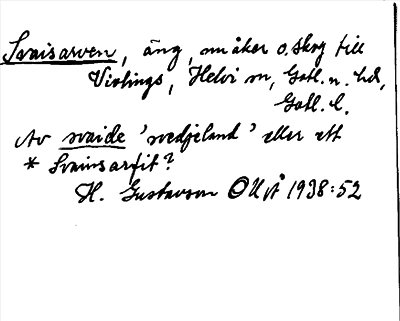 Svaisarven, äng, nu åker o. skog till
Vivlings, Hellvi sn, Gotl. n. hd,
Gotl. l.
Av svaide 'svedjeland' eller ett
* Svainsarfit?
H. Gustavson OUÅ 1938:52